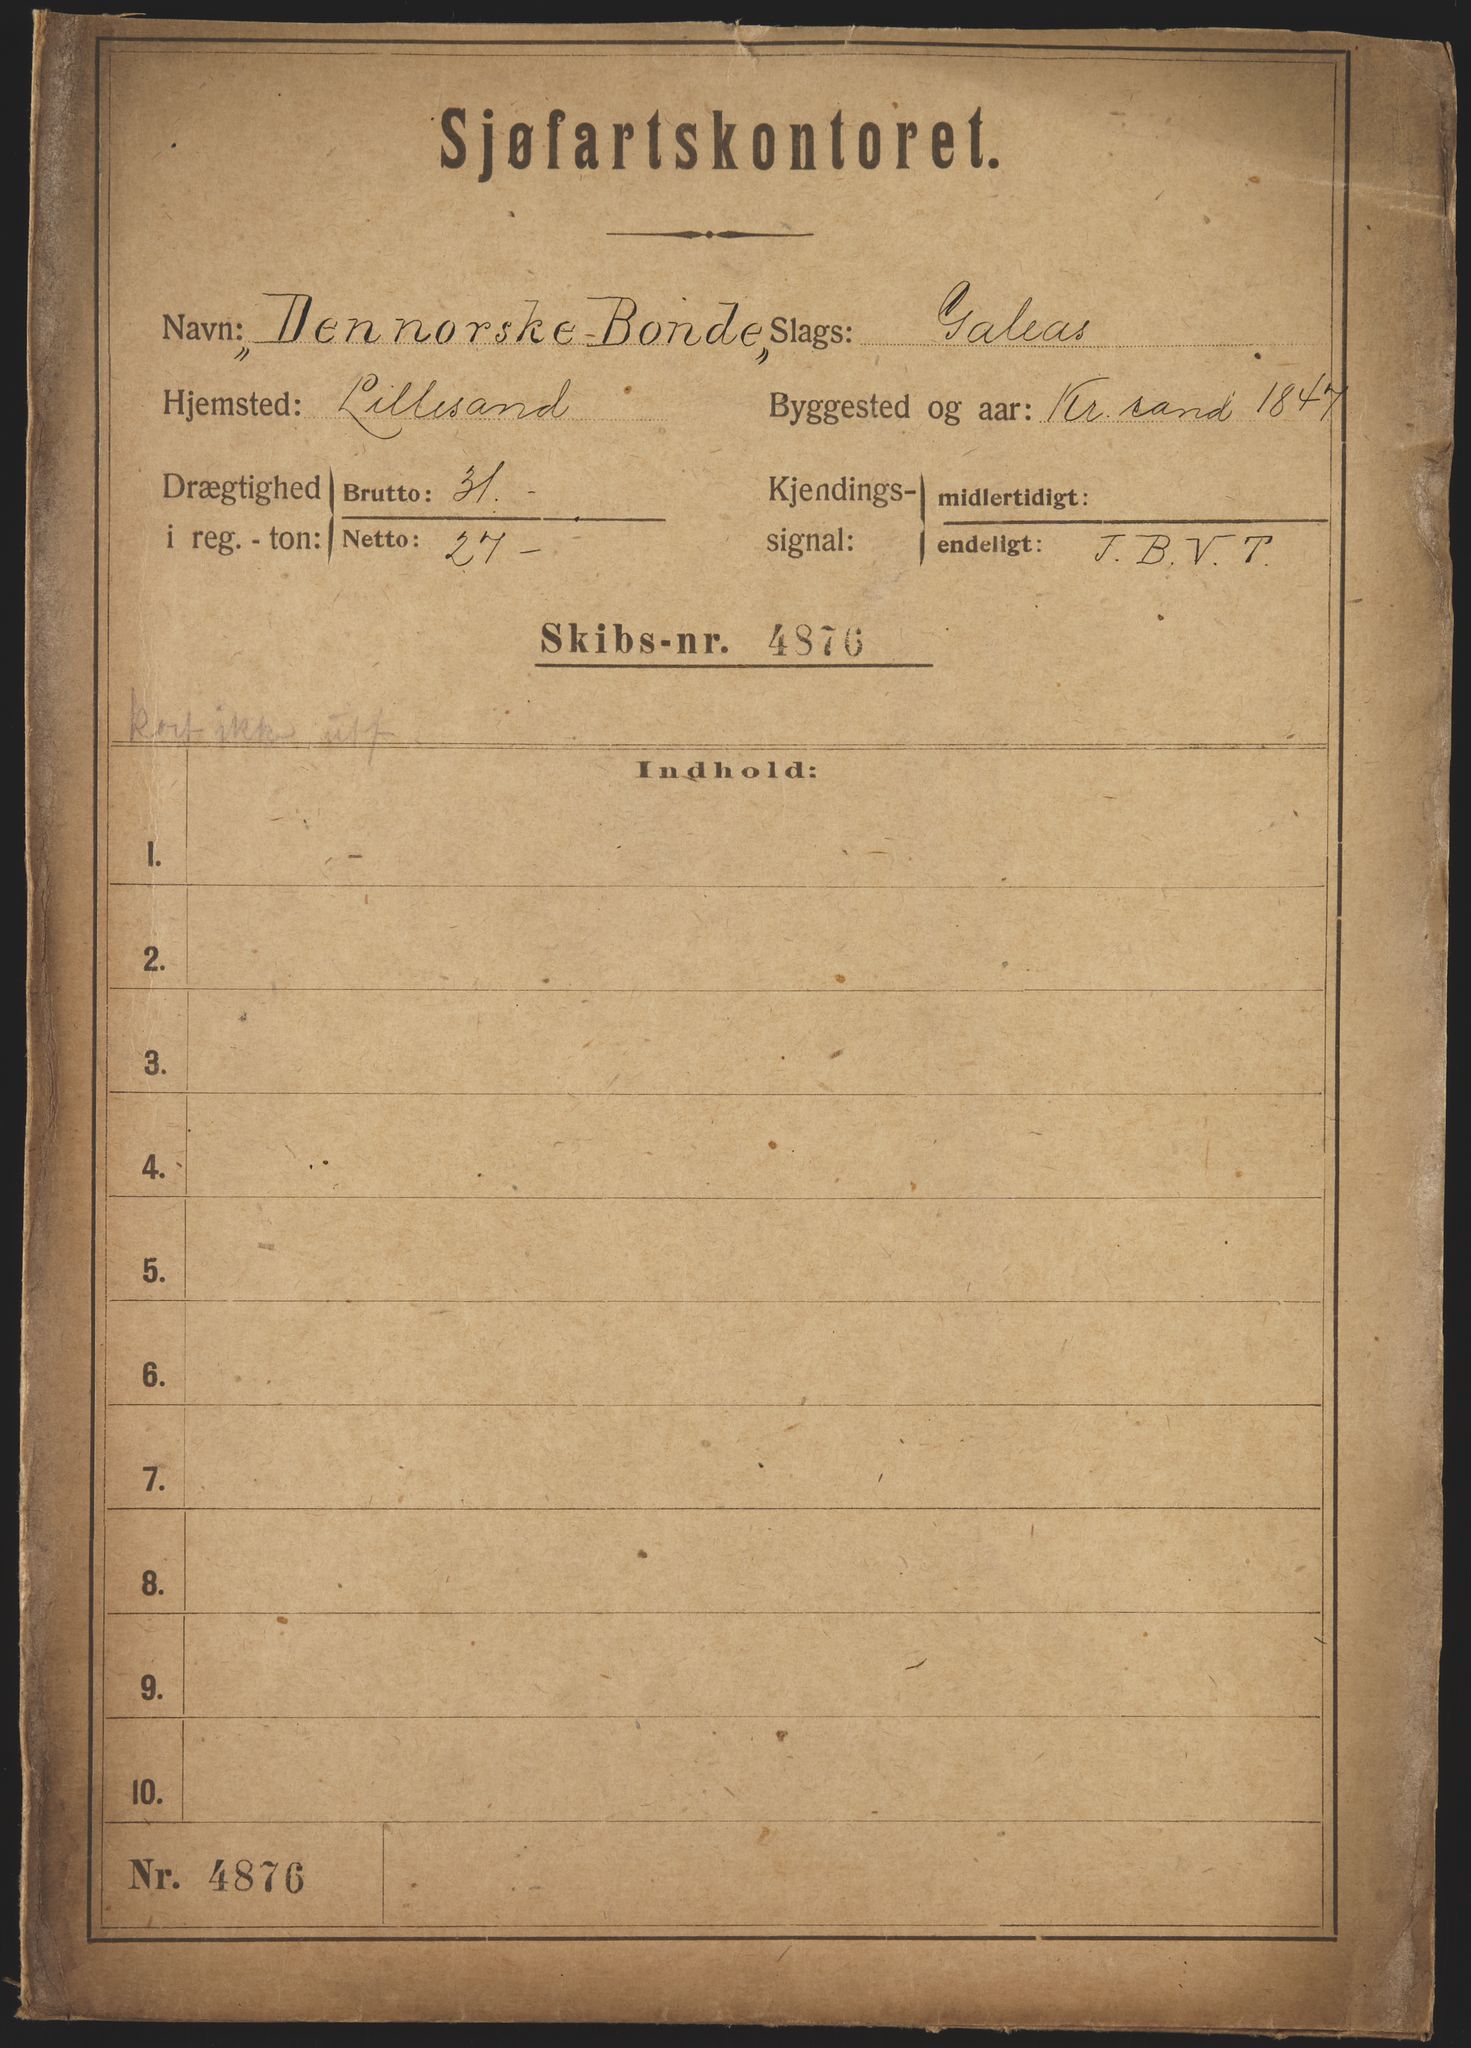 Sjøfartskontoret.
Navn: „Den norske Bonde„ Slags: Galeas
Hjemsted: Lillesand Byggested og aar: Kr. sand 1847
Drægtighed i reg.-ton: Brutto: 31. - Kjendings-signal: midlertidigt:
Netto: 27 - endeligt: J. B. V. T.
Skibs-nr. 4876
kort ikke utf.
Indhold:
1.
2.
3.
4.
5.
6.
7.
8.
9.
10.
Nr. 4876